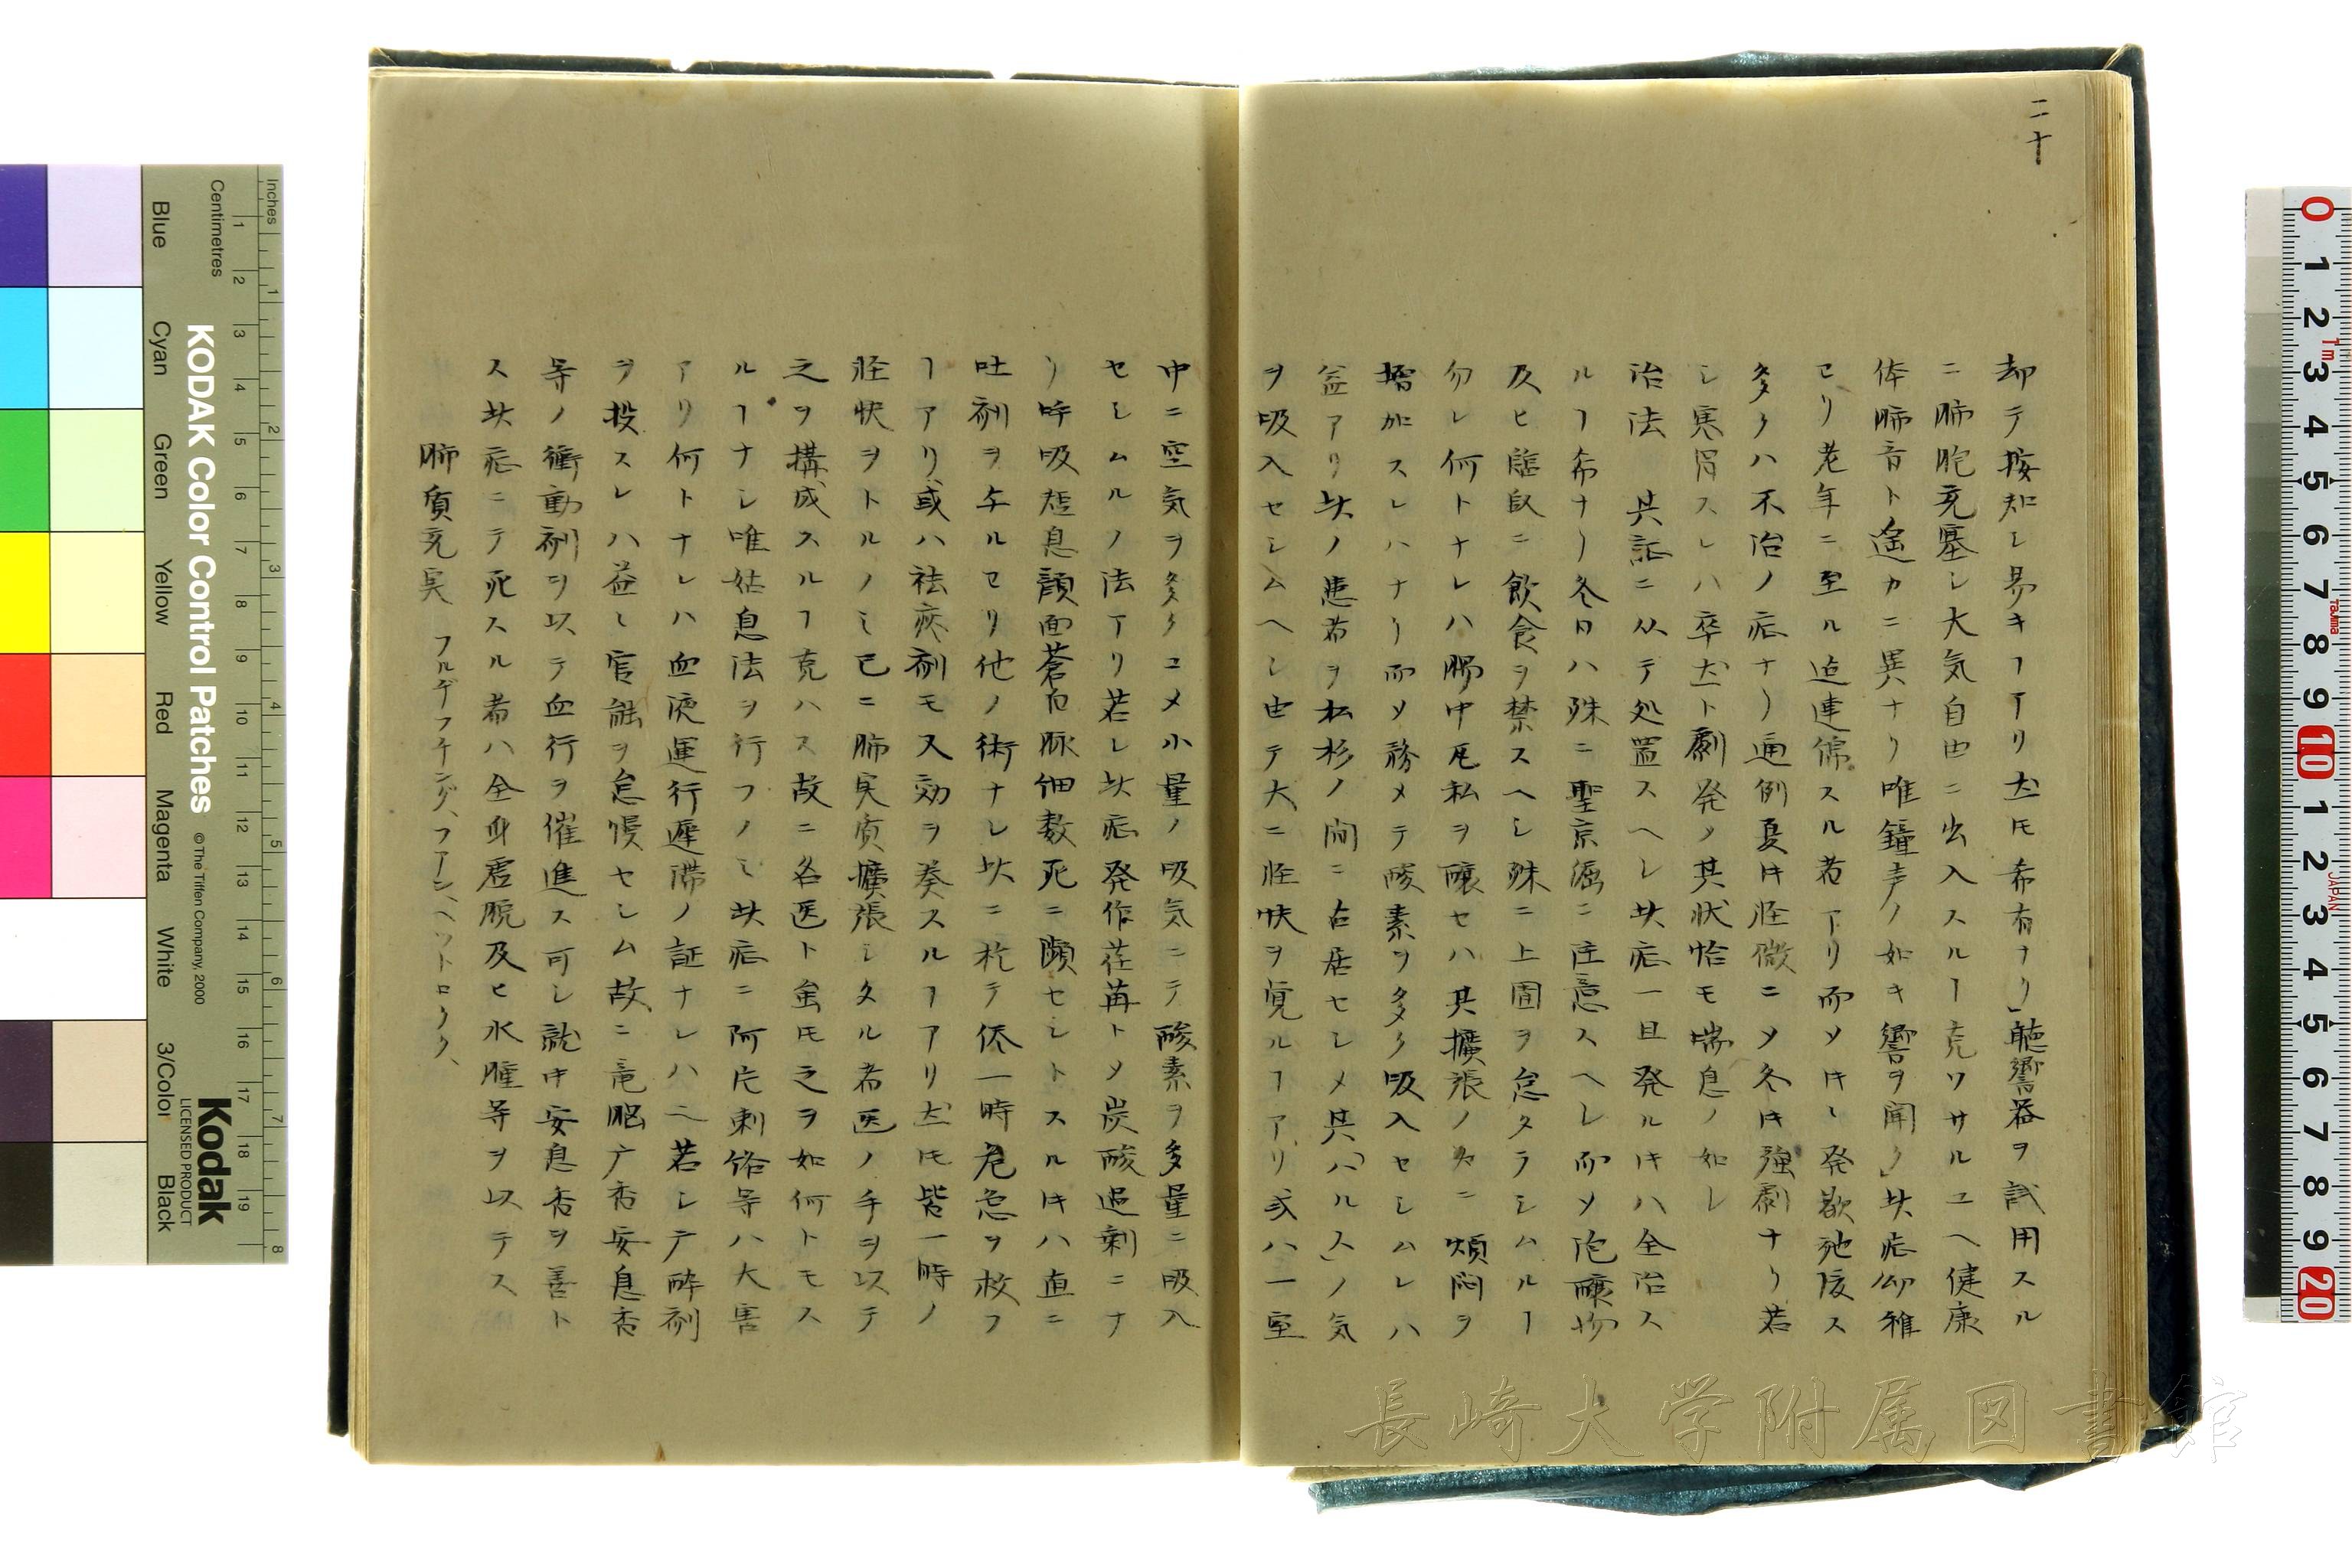 二十
却テ按知シ易キヿアリ𪜈希有ナリ」聴響器ヲ試用スル
ニ肺胞充塞シ大気自由ニ出入スルヿ克ワサルユヘ健康
体肺音ト遙カニ異ナリ唯鐘声ノ如キ響ヲ聞ク」此症幼稚
ヨリ老年ニ至ル迠連綿スル者アリ而ソ𪜈々発歇弛緩ス
多クハ不治ノ症ナリ通例夏ハ軽微ニメ冬ハ強劇ナリ若
シ寒冒スレハ卒然ト劇発ノ其状恰モ喘息ノ如シ
治法　其証ニ从テ処置スヘシ此症一旦発ルキハ全治ス
ルヿ希ナリ冬日ハ殊ニ聖京偏ニ注意スヘシ而メ泡醸物
及ヒ臨臥ニ飲食ヲ禁スヘシ殊ニ上圊ヲ怠タラシムルヿ
勿レ何トナレハ腸中瓦私ヲ醸セハ其擴張ノ為ニ煩悶ヲ
増加スレハナリ而メ務メテ酸素ヲ多ク吸入セシムレハ
益アリ此ノ患者ヲ松杉ノ間ニ占居セシメ其「ハルス」ノ気
ヲ吸入セシムヘシ由テ大ニ軽快ヲ覚ルヿアリ或ハ一室
中ニ空気ヲ多クコメ小量ノ吸気ニテ酸素ヲ多量ニ吸入
セシムルノ法アリ若シ此症発作荏苒トメ炭酸過剰ニナ
リ呼吸短息顔面蒼白脈細数死ニ瀕セントスルキハ直ニ
吐剤ヲ与ルヨリ他ノ術ナシ此ニ於テ係一時危急ヲ救フ
ヿアリ或ハ祛痰剤モ又効ヲ奏スルヿアリ𪜈皆一時ノ
軽快ヲトルノミ已ニ肺実質擴張シタル者医ノ手ヲ以テ
之ヲ搆成スルヿ克ハス故ニ名医ト虽𪜈之ヲ如何トモス
ルヿナシ唯姑息法ヲ行フノミ此症ニ阿片剌絡等ハ大害
アリ何トナレハ血液運行遅滞ノ証ナレハ也若シテ酔剤
ヲ投スレハ益々官能ヲ怠慢セシム故ニ竜脳广香安息香
等ノ衝動剤ヲ以テ血行ヲ催進ス可シ就中安息香ヲ善ト
ス此症ニテ死スル者ハ全身虚脱及ヒ水腫等ヲ以テス
肺質充実　フルヂフチング、ファン、ヘットロング、
0 1 2 3 4 5 6 7 8 9 10 1 2 3 4 5 6 7 8 9 20
1m
Tajima
JAPAN
Inches 1 2 3 4 5 6 7 8
Centimetres 1 2 3 4 5 6 7 8 9 10 11 12 13 14 15 16 17 18 19
KODAK Color Control Patches © The Tiffen Company, 2000
Kodak
LICENSED PRODUCT
Blue Cyan Green Yellow Red Magenta White 3/Color Black
長崎大学附属図書館